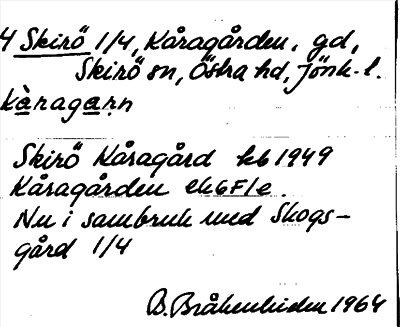 4 Skirö 1/4, Kåragården, gd,
Skirö sn, Östra hd, Jönk. l.
kàragaṛn
Skirö Kåragård kb 1949
Kåragården ek 6F1e.
Nu i sambruk med Skogs-
gård 1/4
B. Bråkenhielm 1964